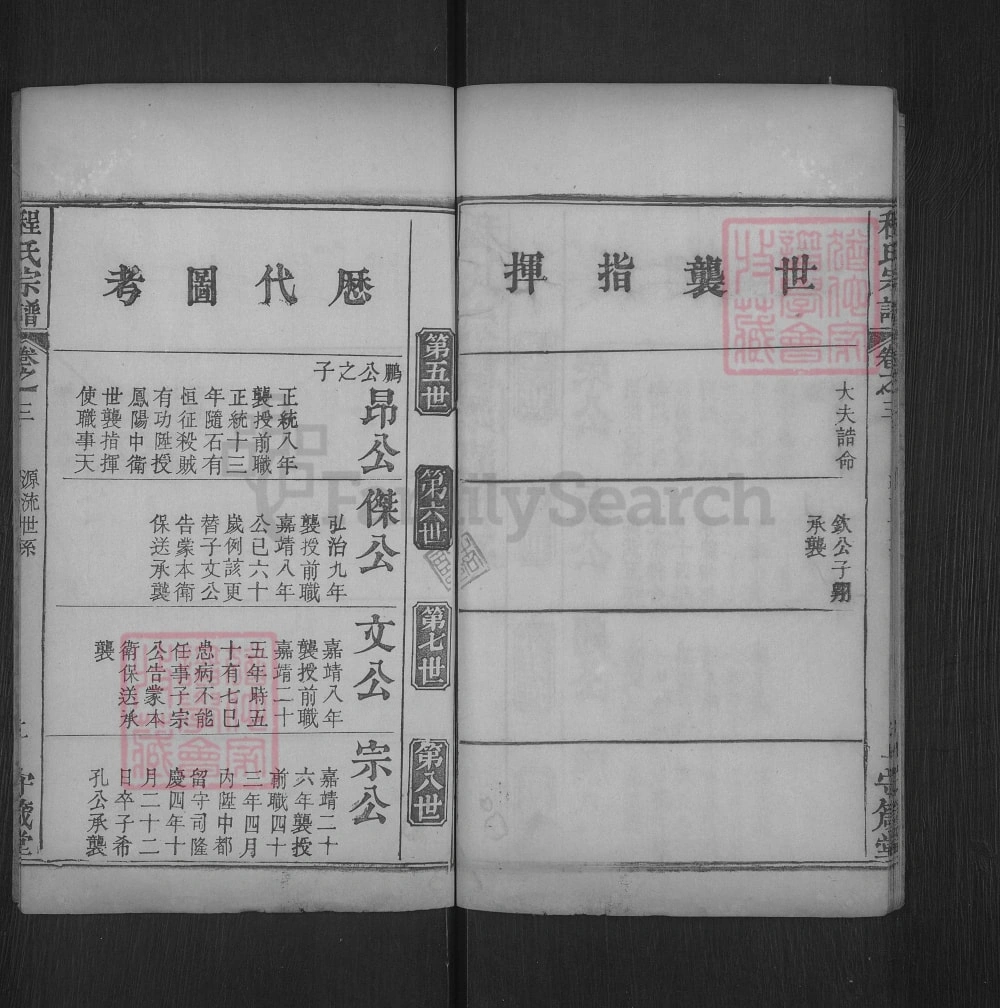 世襲指揮
大夫誥命
欽公子翔
承襲
程氏宗譜
卷之三
歷代圖考
第五世
鵬公之子
昂公
正統八年
襲授前職
正統十三
年隨石有
恒征殺賊
有功陞授
鳳陽中衛
世襲指揮
使職事天
第六世
傑公
弘治九年
襲授前職
嘉靖八年
公已六十
歲例該更
替子文公
告蒙本衛
保送承襲
第七世
文公
嘉靖八年
襲授前職
嘉靖二十
五年時五
十有七已
患病不能
任事子宗
公告蒙本
衛保送承
襲
第八世
宗公
嘉靖二十
六年襲授
前職四十
三年四月
內陞中都
留守司隆
慶四年十
月二十二
日卒子希
孔公承襲
程氏宗譜
卷之三
源流世系
FamilySearch